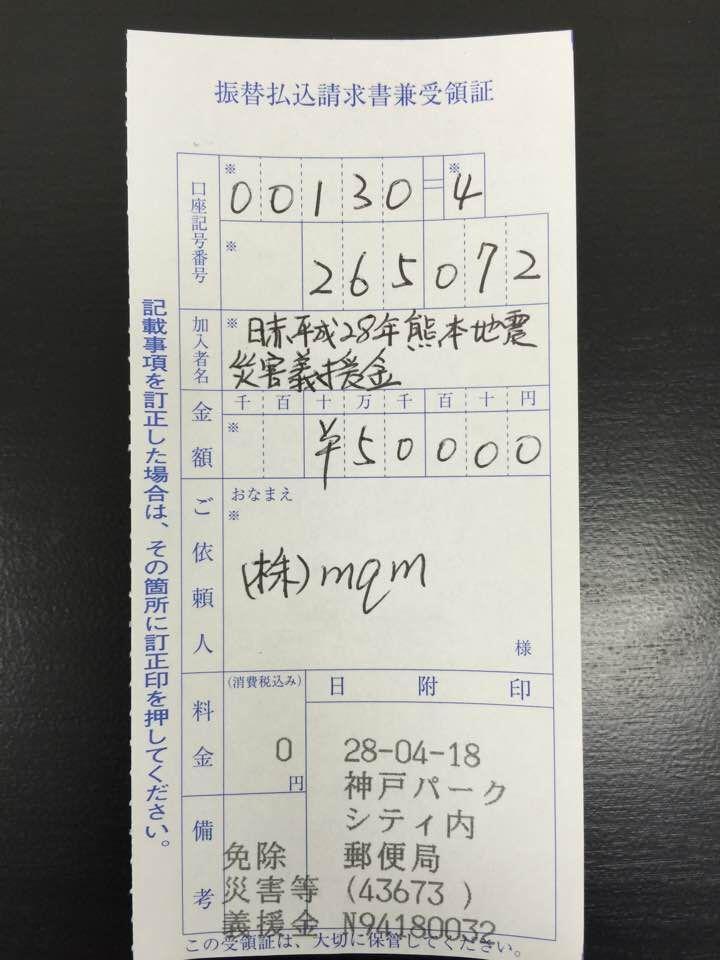 振替払込請求書兼受領証
口座記号番号
※ 00130=※4
※ 265072
加入者名
※ 日赤平成28年熊本地震
災害義援金
金額
千百十万千百十円
※ ¥50000
ご依頼人
おなまえ
※
(株)mqm
様
料金
(消費税込み)
0
円
日附印
28-04-18
神戸パーク
シティ内
郵便局
(43673 )
N94180032
備考
免除
災害等
義援金
この受領証は、大切に保管してください。
記載事項を訂正した場合は、その箇所に訂正印を押してください。